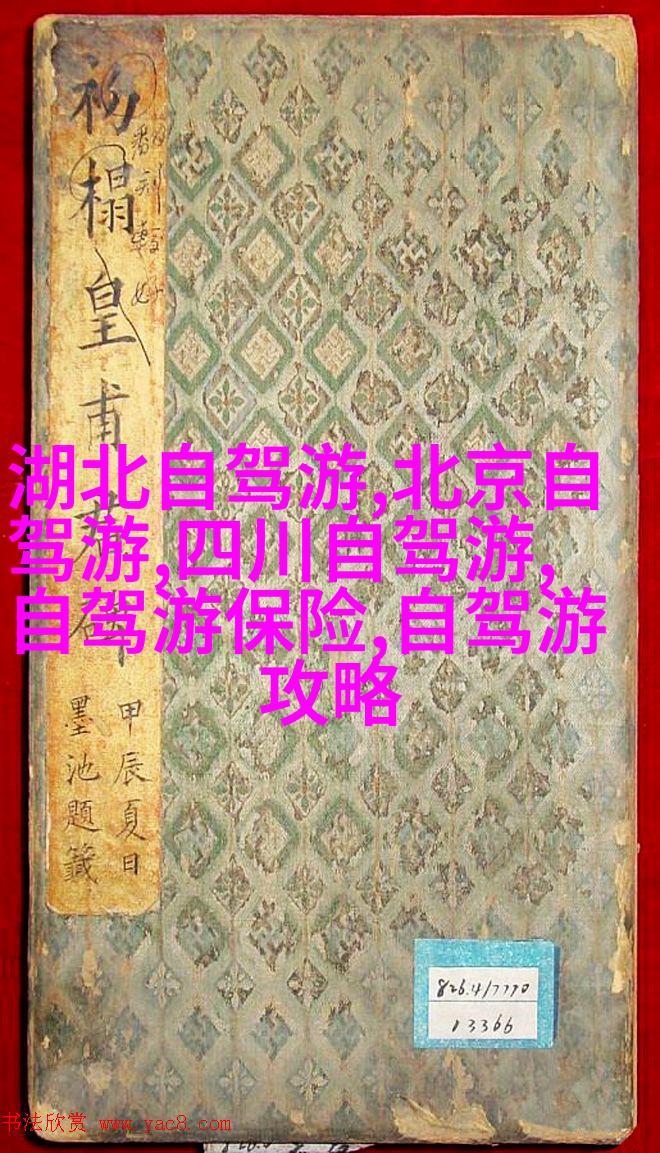 初榻皇甫君碑
甲辰夏日
墨池題籤
湖北自驾游,北京自
驾游,四川自驾游,
自驾游保险,自驾游
攻略
826.4/7770
13366
书法欣赏 www.yac8.com